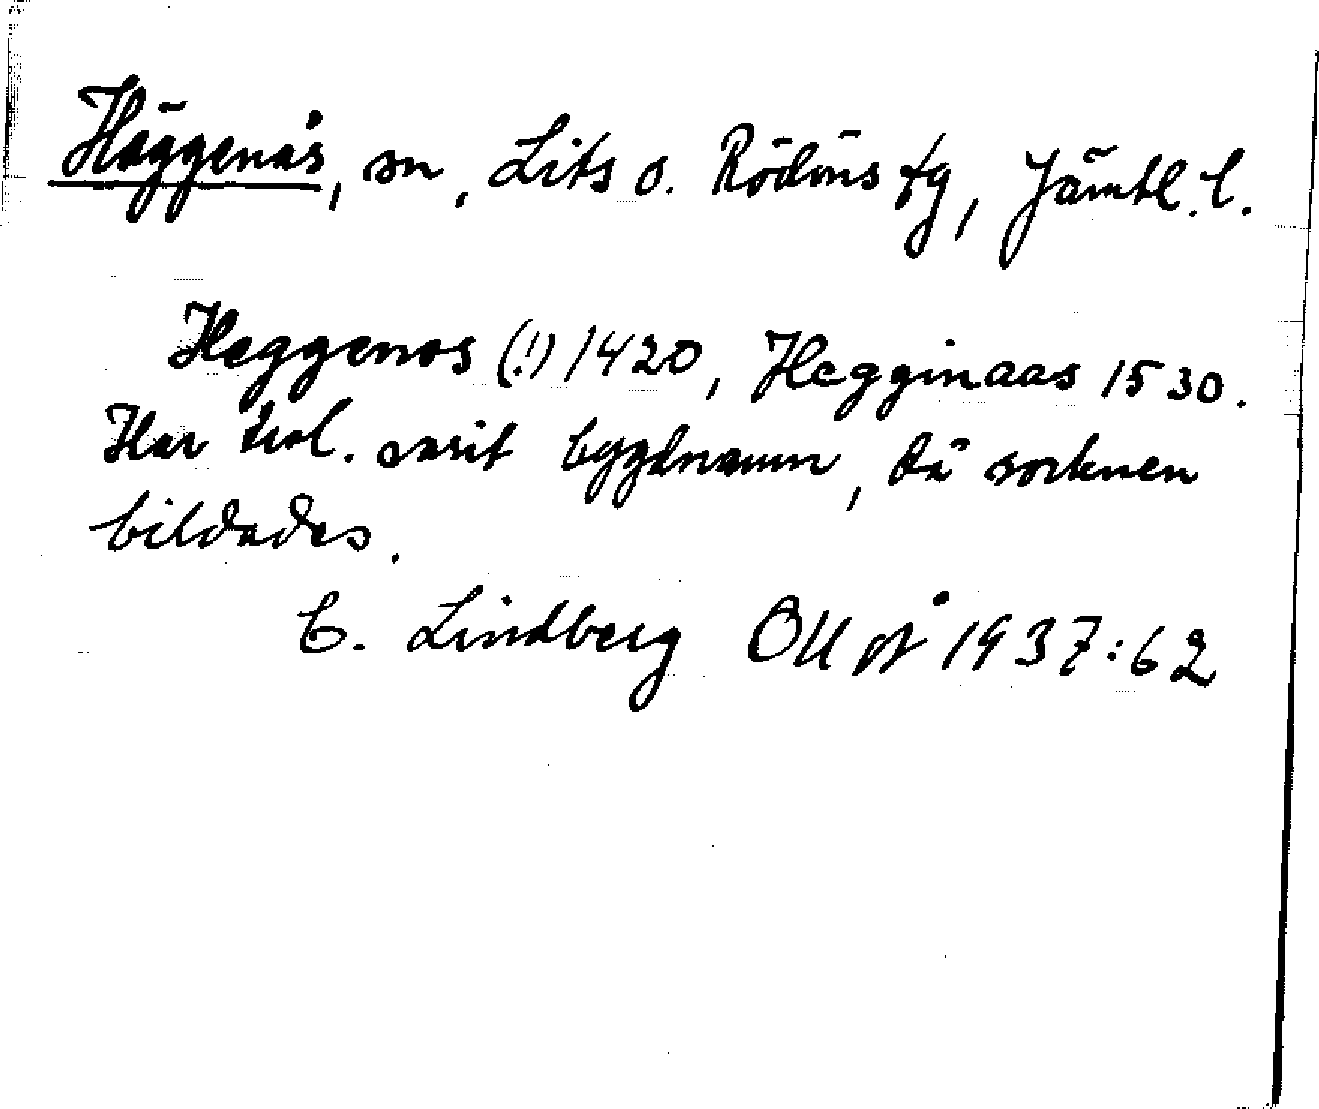 Häggenås, sn, Lits o. Rödöns tg, Jämtl. l.
Heggenos (!) 1420, Hegginaas 1530.
Har trol. varit bygdnamn, då socknen
bildades.
C. Lindberg OUÅ 1937:62